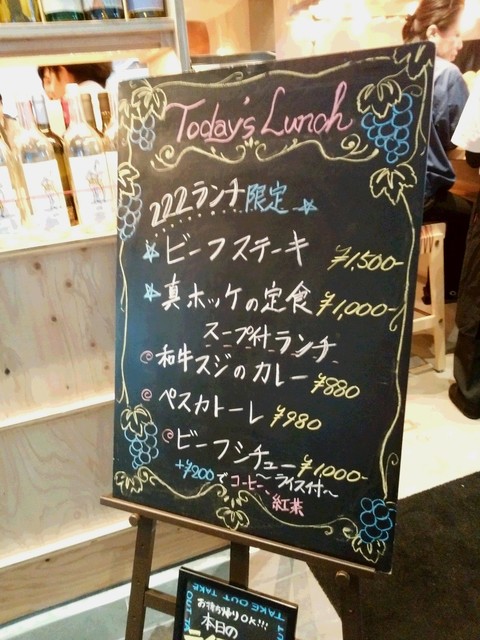 Today's Lunch
222ランチ限定
ビーフステーキ ¥1,500-
真ホッケの定食 ¥1,000-
スープ付ランチ
和牛スジのカレー ¥880
ペスカトーレ ¥980
ビーフシチュー ¥1,000-
ライス付〜
+¥200でコーヒー、紅茶
TAKE OUT TAKE
お持ち帰りOK!!!
本日の